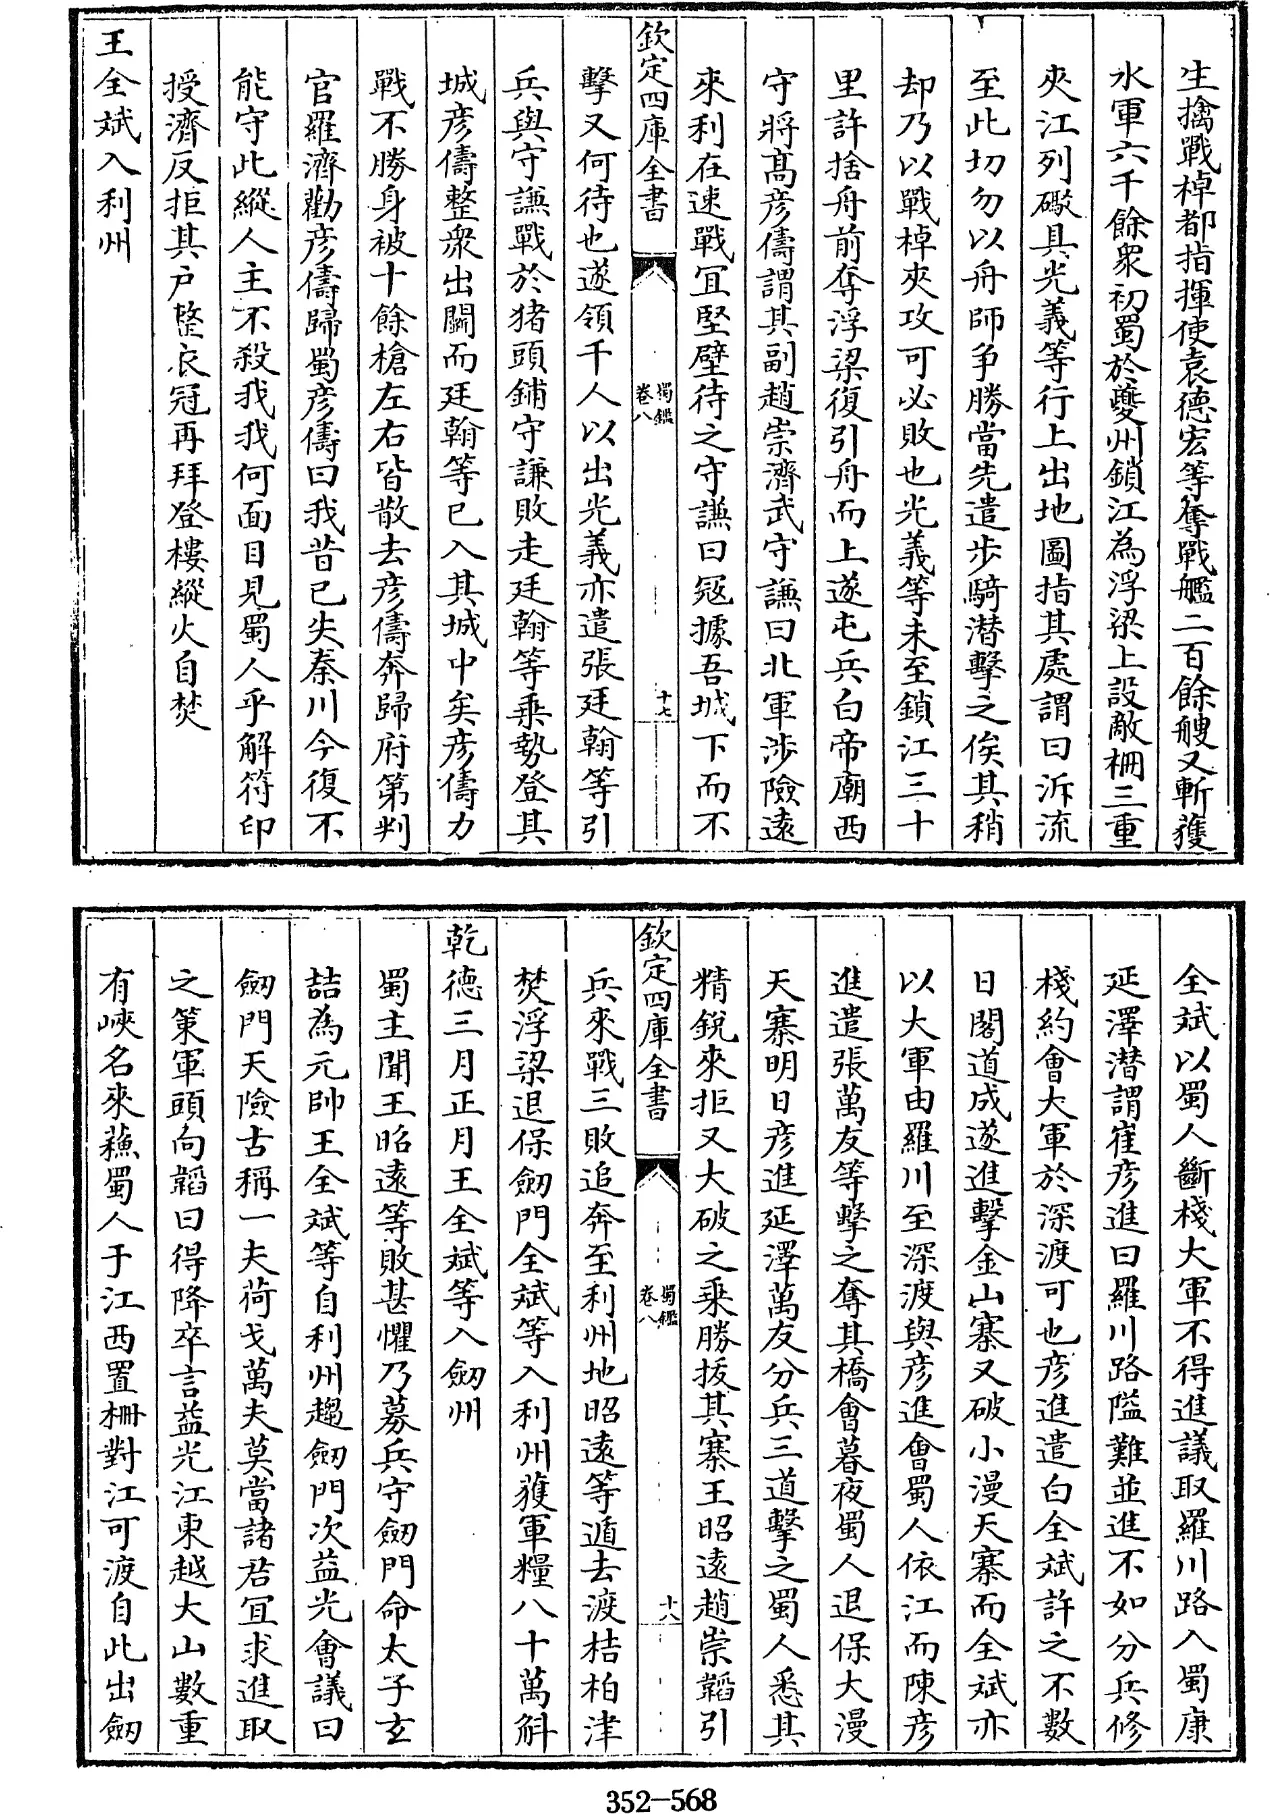 生擒戰棹都指揮使袁德宏等奪戰艦二百餘艘又斬獲
水軍六千餘衆初蜀於夔州鎖江為浮梁上設敵柵三重
夾江列礮具光義等行上出地圖指其處謂曰泝流
至此切勿以舟師争勝當先遣步騎潜擊之俟其稍
却乃以戰棹夾攻可必敗也光義等未至鎖江三十
里許捨舟前奪浮梁復引舟而上遂屯兵白帝廟西
守將髙彦儔謂其副趙崇濟武守謙曰北軍渉險逺
來利在速戰冝堅壁待之守謙曰冦據吾城下而不
欽定四庫全書
蜀鑑
卷八
十七
擊又何待也遂領千人以出光義亦遣張廷翰等引
兵與守謙戰於猪頭鋪守謙敗走廷翰等乗勢登其
城彦儔整衆出鬬而廷翰等已入其城中矣彦儔力
戰不勝身被十餘槍左右皆散去彦儔奔歸府第判
官羅濟勸彦儔歸蜀彦儔曰我昔已失秦川今復不
能守此縱人主不殺我我何面目見蜀人乎解符印
授濟反拒其户整衣冠再拜登樓縱火自焚
王全斌入利州
全斌以蜀人斷棧大軍不得進議取羅川路入蜀康
延澤潜謂崔彦進曰羅川路隘難並進不如分兵修
棧約會大軍於深渡可也彦進遣白全斌許之不數
日閣道成遂進擊金山寨又破小漫天寨而全斌亦
以大軍由羅川至深渡與彦進會蜀人依江而陳彦
進遣張萬友等擊之奪其橋會暮夜蜀人退保大漫
天寨明日彦進延澤萬友分兵三道擊之蜀人悉其
精銳來拒又大破之乗勝拔其寨王昭逺趙崇韜引
欽定四庫全書
蜀鑑
卷八
十八
兵來戰三敗追奔至利州地昭逺等遁去渡桔柏津
焚浮梁退保劒門全斌等入利州獲軍糧八十萬斛
乾德三月正月王全斌等入劒州
蜀主聞王昭逺等敗甚懼乃募兵守劒門命太子玄
喆為元帥王全斌等自利州趨劒門次益光會議曰
劒門天險古稱一夫荷戈萬夫莫當諸君冝求進取
之策軍頭向韜曰得降卒言益光江東越大山數重
有峽名來蘓蜀人于江西置柵對江可渡自此出劒
352-568